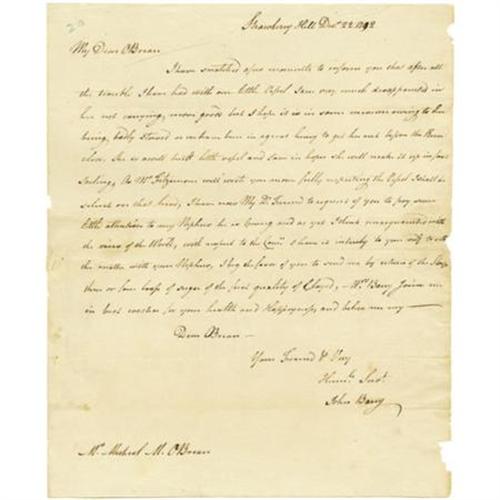 20
Strawberry Hill Decr 22 1792
My Dear OBrian
I have snatched a few moments to inform you that after all
the trouble I have had with our little Vessel I am very much disappointed in
her not carrying more goods but I hope it is in some measure owing to her
being badly stowed or we have been in a great hurry to get her out before the River
close, she is a well built little vessel and I am in hopes she will make it up in fast
sailing, As Mr Fitzsimons will write you more fully respecting the Vessel I shall be
silent on that head, I have now My Dr Friend to request of you to pay some
little attention to my Nephew he is young and as yet I think unacquainted with
the views of the World, with respect to the I leave it intirely to you
the matter with your Nephew, I beg the favor of you to send me by return of the Sloop
three or four loafs of sugar of the first quality of Clayed, - Mrs Barry Joins me
in best wishes for your health and Happyness, and believe me my -
Dear Brian -
Your Friend & Very
Humle Servt
John Barry
Mr Micheal M. OBrian